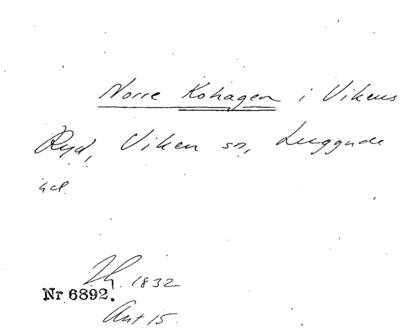 Norre Kohagen i Vikens
Ryd, Viken sn, Luggude
hd.
1832
Nr 6892.
Akt 15.